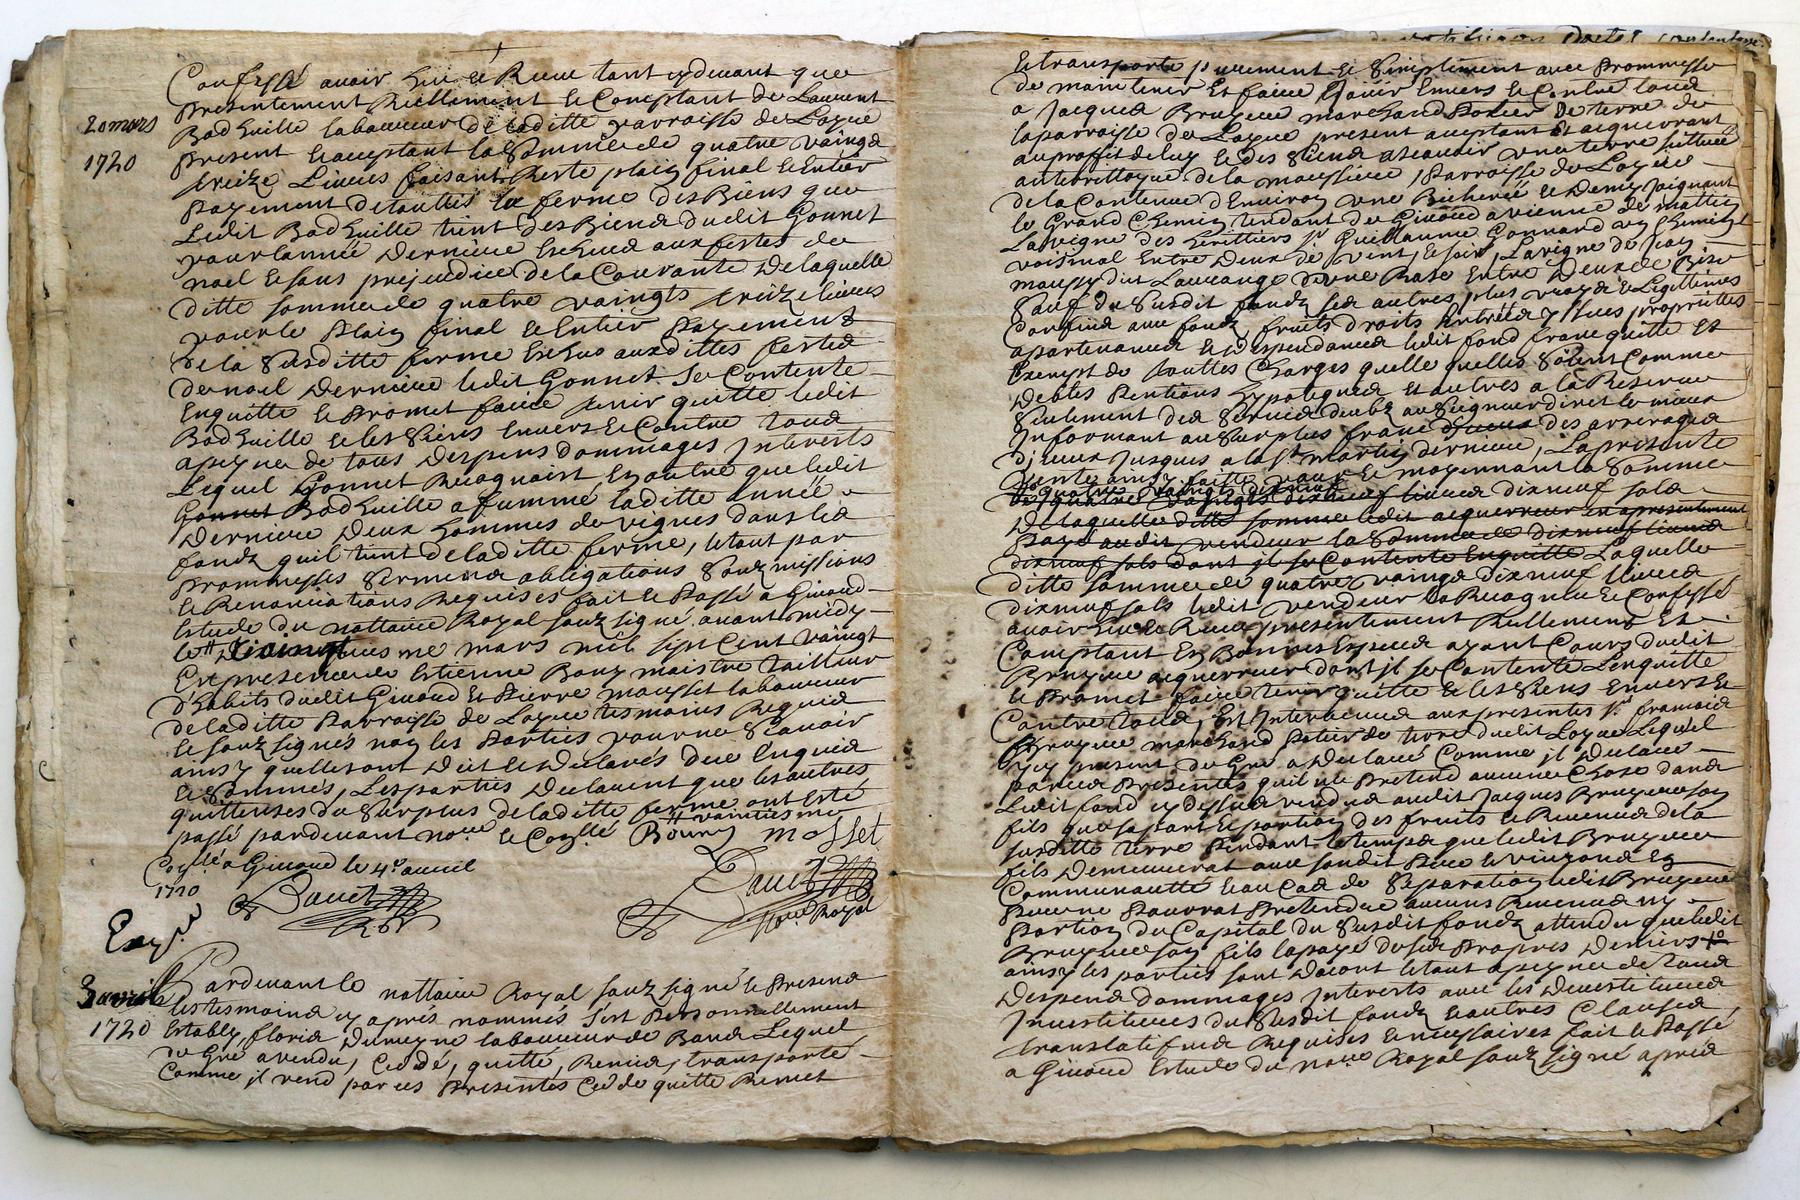 Confessé avoir heu et Receu tant cydevant que
presentement Reellement et Comptant de Laurent
20 mars
Badhuille laboureur de laditte parroisse de Loyre
1720
present et acceptant la Somme de quatre vaingt
treize Livres faisant Reste plain final et Entier
payement de touttes la ferme des Biens que
Ledit Badhuille tient des Biens dudit Gonnet
pour lannée derniere Escheue aux festes de
noel et sans prejudice de la Courante de laquelle
ditte somme de quatre vaingts treize livres
pour le plain final et Entier payement
de la Susditte ferme Escheue auxdittes festes
de noel derniere ledit Gonnet Se Contente
Enquitte et Promet faire tenir quitte ledit
Badhuille et les Siens Envers et Contre tous
apeyne de tous despens dommages Interests
Lequel Gonnet Recognoist En outre que ledit
Gonnet Badhuille a fumme laditte année
derniere deux hommes de vignes dans les
fondz quil tient de laditte ferme, le tout par
Prommesses Serments obligations Soubzmissions
et Renonciations Requises fait et Passé a Givord
Estude du nottaire Royal soubzsigné avant midy
le vaingt me mars mil sept cent vaingt
En presence de Estienne Bouy maistre tailleur
d'habits dudit Givord et Pierre mousset laboureur
de laditte Parroisse de Loyre tesmoins Requis
et soubzsignés non les Parties pour ne Scavoir
ainsy quelles ont dit et declarés de ce Enquis
et Sommés, Les parties declarent que les autres
quittances du Surplus de laditte ferme ont Esté
passé pardevant no.re et Con.llé Boury mosset
vaintiesme
Con.llé a Givord le 4.e avril
1720
Dauet Dauet
No.re Royal
Exp.ié
Pardevant le nottaire Royal soubzsigné et Presens
3 avril
les tesmoins cy apres nommés sest Personnellement
1720
Estably, floris dureyne laboureur de Bans Lequel
de Gré a vendu, Ceddé, quitté, Remis, transporté
Comme il vend par ces Presentes Cedde quitte Remet
et transporte purement et Simplement avec Prommesse
de maintenir Et faire Jouir Envers et Contre tous
a Jacques Bruyere marchand Potier de terre de
la parroisse de Loyre present acceptant Et acquerant
au proffit de luy et des Siens ascavoir une terre scittuée
au territoyre de la moussiere, Parroisse de Loyre
de la Contenue d'Environ une Bicherée et Demy Joignant
le Grand Chemin tendant de Givord a vienne de mattin
La vigne des heritiers s.r Guillaume Gonnard un Chemin
voisinal Entre Deux de vent, et soir, La vigne de Jean
moussy dit Laurange d'une Raze Entre Deux de Bize
Sauf du Susdit fondz ses autres plus vrays et Legittimes
Confins avec fondz, fruits droits Entrées yssues proprietes
apartenances et despendances ledit fond franc quitte et
Exempt de touttes Charges quelle quelles Soient Comme
Debtes Pentions hypoteques et autres a la Reserve
Seulement des Servis deubz au Seigneur direct le mieux
Informant au Surplus franc diceux des arrerages
diceux Jusques a la S.t martin derniere, La presente
vente ainsy faitte pour et moyennant la Somme
de quatre vaingts dixneuf livres dixneuf sols
De laquelle ditte somme ledit acquerreur en a presentement
payé audit vendeur la Somme de dixneuf livres
dixneuf sols dont il se Contente Enquitte Laquelle
ditte Somme de quatre vaings dixneuf livres
dixneuf sols ledit vendeur a Recogneu et Confessé
avoir heu et Receu presentement Reellement Et
Comptant En Bonnes Especes ayant Cours dudit
Bruyere acquerreur dont il se Contente Lenquitte
et Promet faire tenir quitte et les Siens Envers Et
Contre tous, Est Intervenu aux presentes s.r francois
Bruyere marchand Potier de terre dudit Loyre Lequel
cy present de Gré a declaré Comme il declare
par ces Presentes quil ne Pretend aucune Chose dans
Ledit fond cy dessus vendu audit Jacques Bruyere son
fils que sa part Et portion des fruits et Revenus de la
susditte terre Pendant le temps que ledit Bruyere
fils demeurerat avec sondit Pere et vivront En
Communautté et au Cas de Separation ledit Bruyere
Pere ne Pourrat Pretendre aucuns Revenus ny
Portion du Capital du Susdit fondz attendu que ledit
Bruyere son fils la payé de ses Propres Deniers
ainsy les parties sont dacort le tout a peyne de tous
despens dommages Interests avec les Devestitures
Investitures du Susdit fondz et autres Clauses
translatifves Requises et necessaires fait et Passé
a Givord Estude du no.re Royal soubzsigné apres